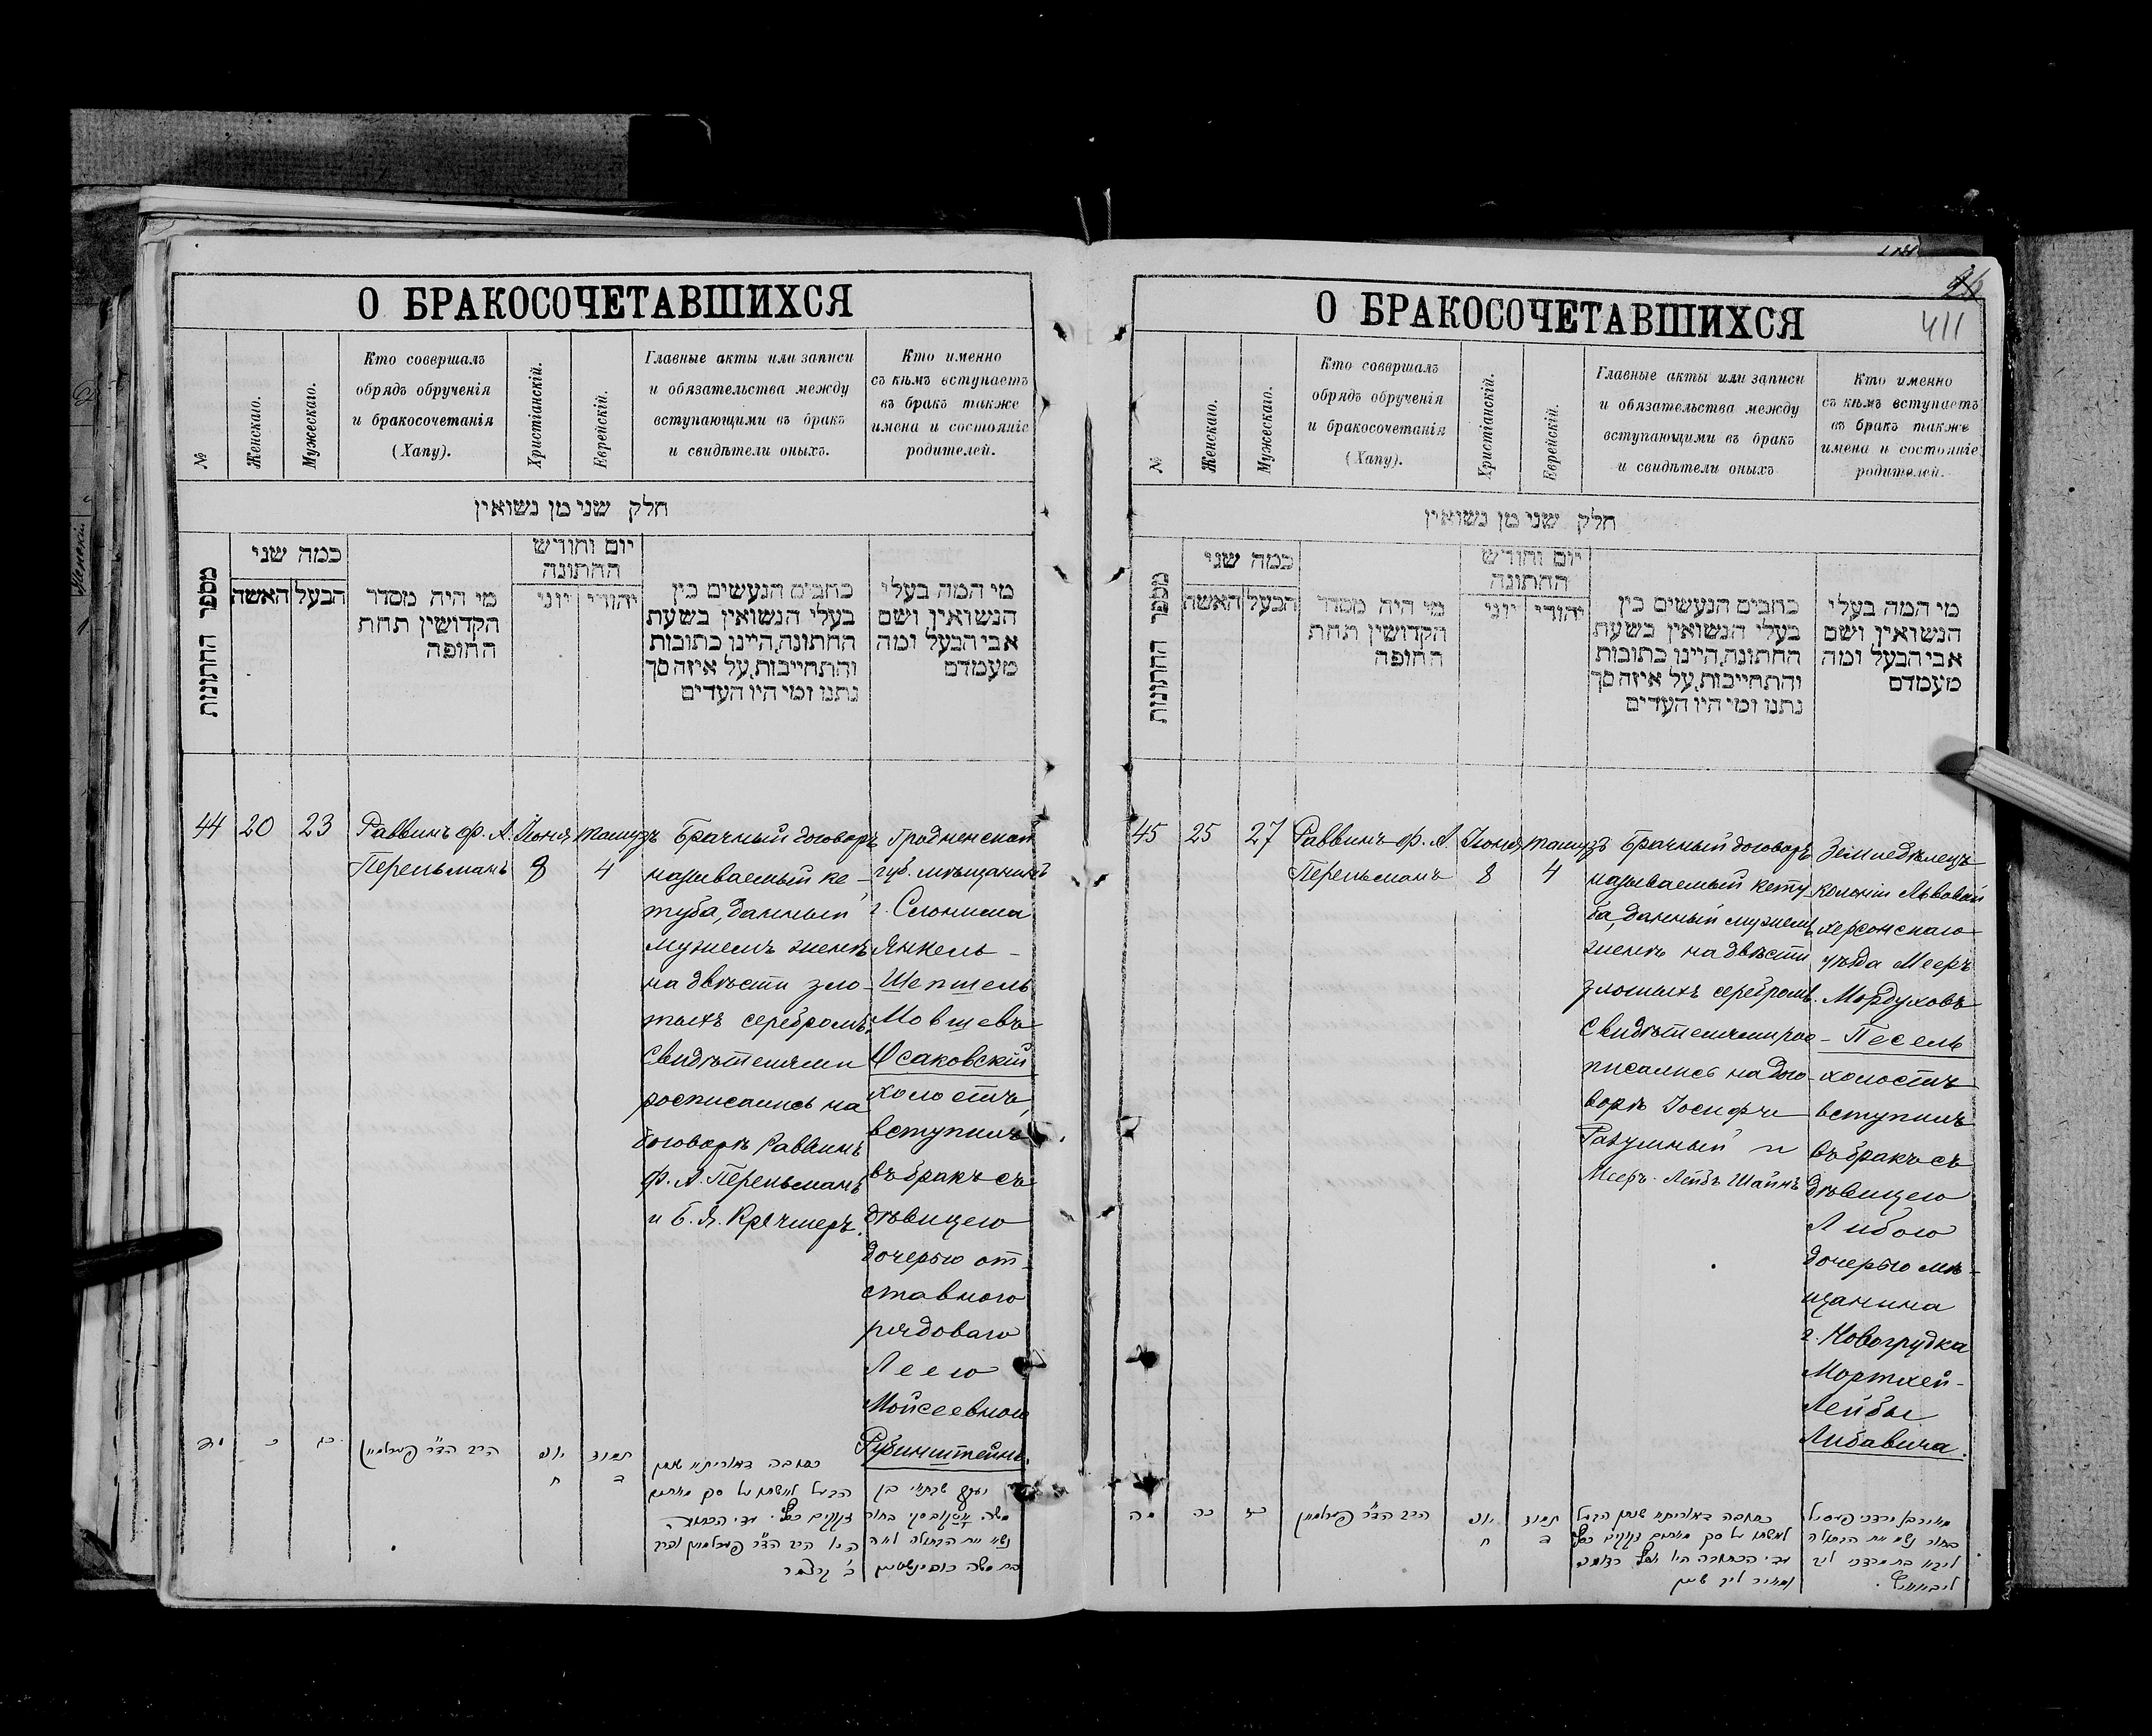 О БРАКОСОЧЕТАВШИХСЯ
№
Женскаго.
Мужескаго.
Кто совершалъ
обрядъ обрученія
и бракосочетанія
(Хапу).
Христіанскій.
Еврейскій.
Главные акты или записи
и обязательства между
вступающими въ бракъ
и свидѣтели оныхъ.
Кто именно
съ кѣмъ вступаетъ
въ бракъ также
имена и состояніе
родителей.
חלק שני מן נשואין
מספר החתונות
כמה שני
האשה
הבעל
מי היה מסדר
הקדושין תחת
החופה
יום וחודש
החתונה
יוני
יהודי
כתבים הנעשים בין
בעלי הנשואין בשעת
החתונה, היינו כתובות
והתחייבות, על איזה סך
נתנו ומי היו העדים
מי המה בעלי
הנשואין ושם
אבי הבעל ומה
מעמדם
44
20
23
Раввинъ Ф. А.
Перельманъ
Іюня
8
тамузъ
4
Брачный договоръ
называемый ке-
туба, данный
мужемъ женѣ
на двѣсти зло-
тыхъ серебромъ.
Свидѣтелями
росписались на
договорѣ Раввинъ
Ф. А. Перельманъ
и Б. Я. Кречмеръ.
Гродненской
губ. мѣщанинъ
г. Слонима
Янкель-
Шепшель
Мовшевъ
Осаковскій
холостъ,
вступилъ
въ бракъ съ
дѣвицею
дочерью от-
ставного
рядоваго
Леею
Мойсеевною
Рубинштейнъ.
מד
כ
כג
הרב הד"ר פערלמאן
יוני
ח
תמוז
ד
О БРАКОСОЧЕТАВШИХСЯ
26
411
№
Женскаго.
Мужескаго.
Кто совершалъ
обрядъ обрученія
и бракосочетанія
(Хапу).
Христіанскій.
Еврейскій.
Главные акты или записи
и обязательства между
вступающими въ бракъ
и свидѣтели оныхъ
Кто именно
съ кѣмъ вступаетъ
въ бракъ также
имена и состояніе
родителей.
חלק שני מן נשואין
מספר החתונות
כמה שני
האשה
הבעל
מי היה מסדר
הקדושין תחת
החופה
יום וחודש
החתונה
יוני
יהודי
כתבים הנעשים בין
בעלי הנשואין בשעת
החתונה, היינו כתובות
והתחייבות, על איזה סך
נתנו ומי היו העדים
מי המה בעלי
הנשואין ושם
אבי הבעל ומה
מעמדם
45
25
27
Раввинъ Ф. А.
Перельманъ
Іюня
8
тамузъ
4
Брачный договоръ
называемый кету-
ба, данный мужемъ
женѣ на двѣсти
злотыхъ серебромъ.
Свидѣтелями рос-
писались на дого-
ворѣ Іосифъ
Разумный и
Мееръ-Лейбъ Шайнъ
Земледѣлецъ
колоніи Львовой
херсонскаго
уѣзда Мееръ
Мордуховъ
Песель
холостъ
вступилъ
въ бракъ съ
дѣвицею
Либою
дочерью мѣ-
щанина
г. Новогрудка
Мортхей-
Лейбы
Либавича.
מה
כה
כז
הרב הד"ר פערלמאן
יוני
ח
תמוז
ד